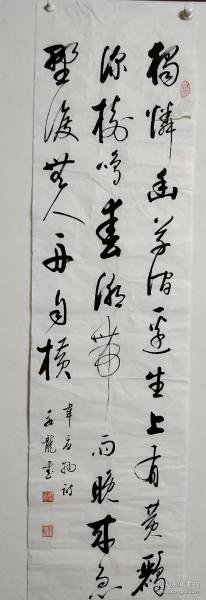 獨憐幽草澗邊生上有黃鸝
深樹鳴春潮帶雨晚來急
野渡無人舟自橫
韋應物詩
龍書